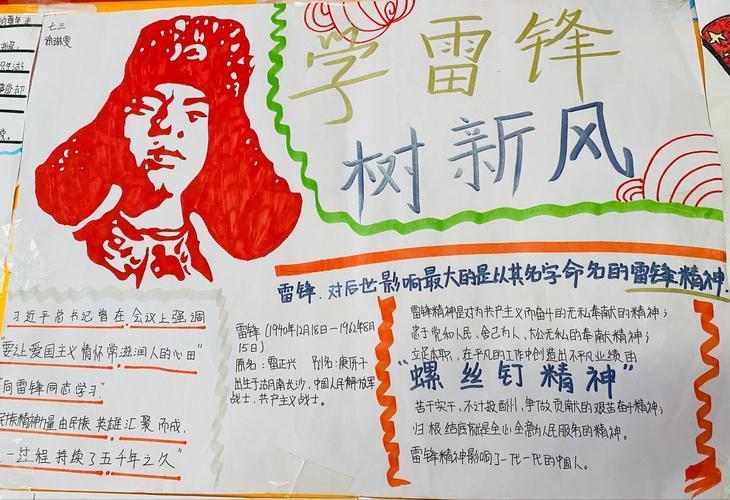 七三
学雷锋
树新风
雷锋,对后世影响最大的是以其名字命名的雷锋精神.
习近平总书记曾在会议上强调
"要让爱国主义情怀常滋润人的心田"
"向雷锋同志学习"
民族精神力量由民族英雄汇聚而成,
一过程持续了五千年之久"
雷锋(1940年12月18日-1962年8月
15日)
原名:雷正兴 别名:庚伢子
出生于达月南长沙,中国人民解放军
战士,共产主义战士。
雷锋精神是对为共产主义而奋斗的无私奉献的精神;
忠于党和人民、舍己为人、大公无私的奉献精神;
立足本职、在平凡的工作中创造出不平凡业绩的
"螺丝钉精神"
苦干实干、不计报酬、争做贡献的艰苦奋斗精神;
归根结底就是全心全意为人民服务的精神。
雷锋精神影响了一代一代的中国人。